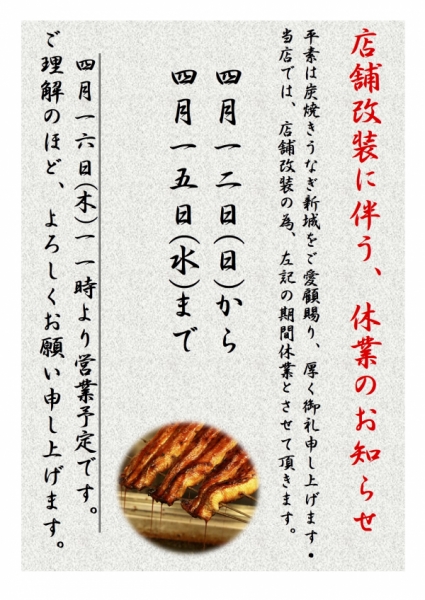 店舗改装に伴う、休業のお知らせ
平素は炭焼きうなぎ新城をご愛顧賜り、厚く御礼申し上げます・
当店では、店舗改装の為、左記の期間休業とさせて頂きます。
四月一二日(日)から
四月一五日(水)まで
四月一六日(木)一一時より営業予定です。
ご理解のほど、よろしくお願い申し上げます。